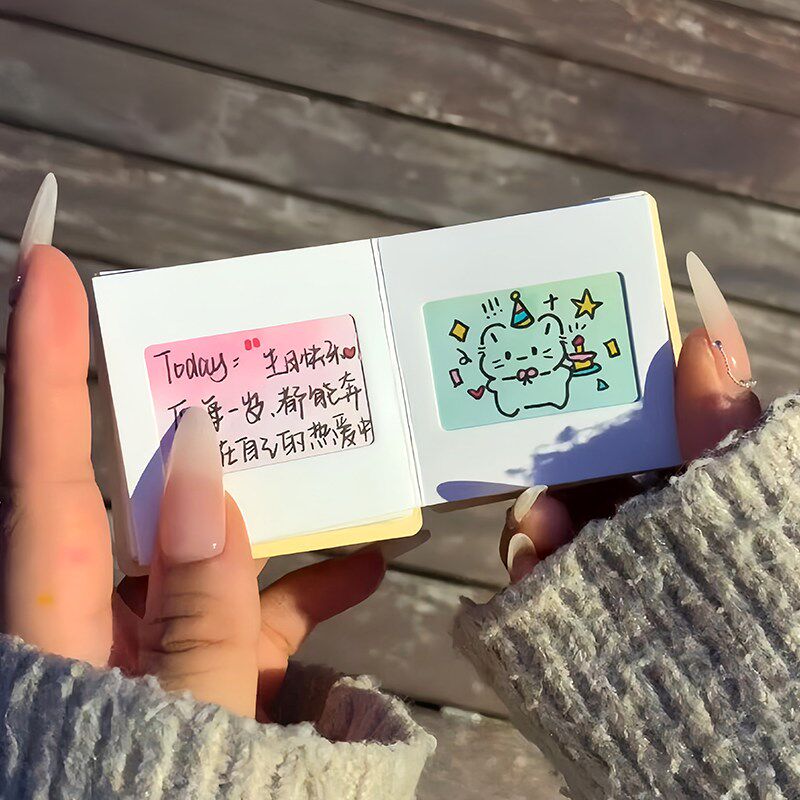 Today: "生日快乐
每一岁、都能奔
在自己的热爱中